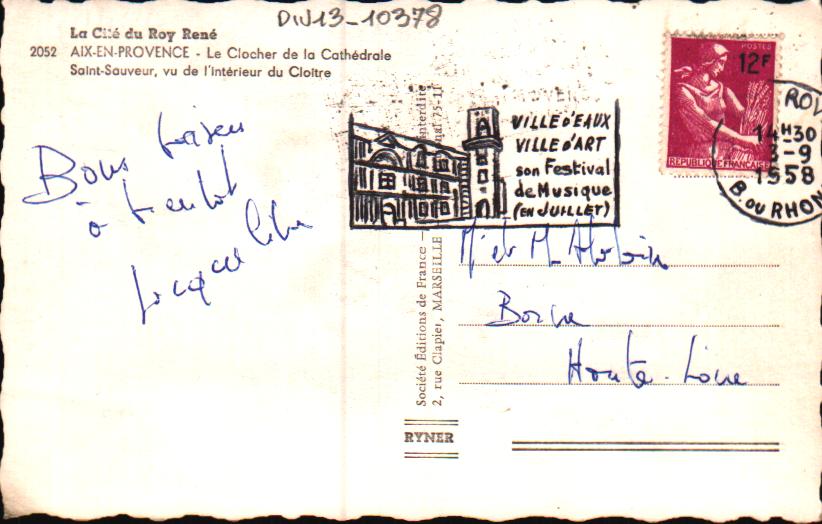 DIV13-10378
La Cité du Roy René
2052 AIX-EN-PROVENCE - Le Clocher de la Cathédrale
Saint-Sauveur, vu de l'intérieur du Cloître
Bons baisers
à bientôt
Jacqueline
VILLE D'EAUX
VILLE D'ART
son Festival
de Musique
(EN JUILLET)
POSTES
12F
REPUBLIQUE FRANÇAISE
14H30
3-9
1958
B. DU RHON
Société Éditions de France -
2, rue Clapier, MARSEILLE
RYNER
M et M
Borne
Haute-Loire